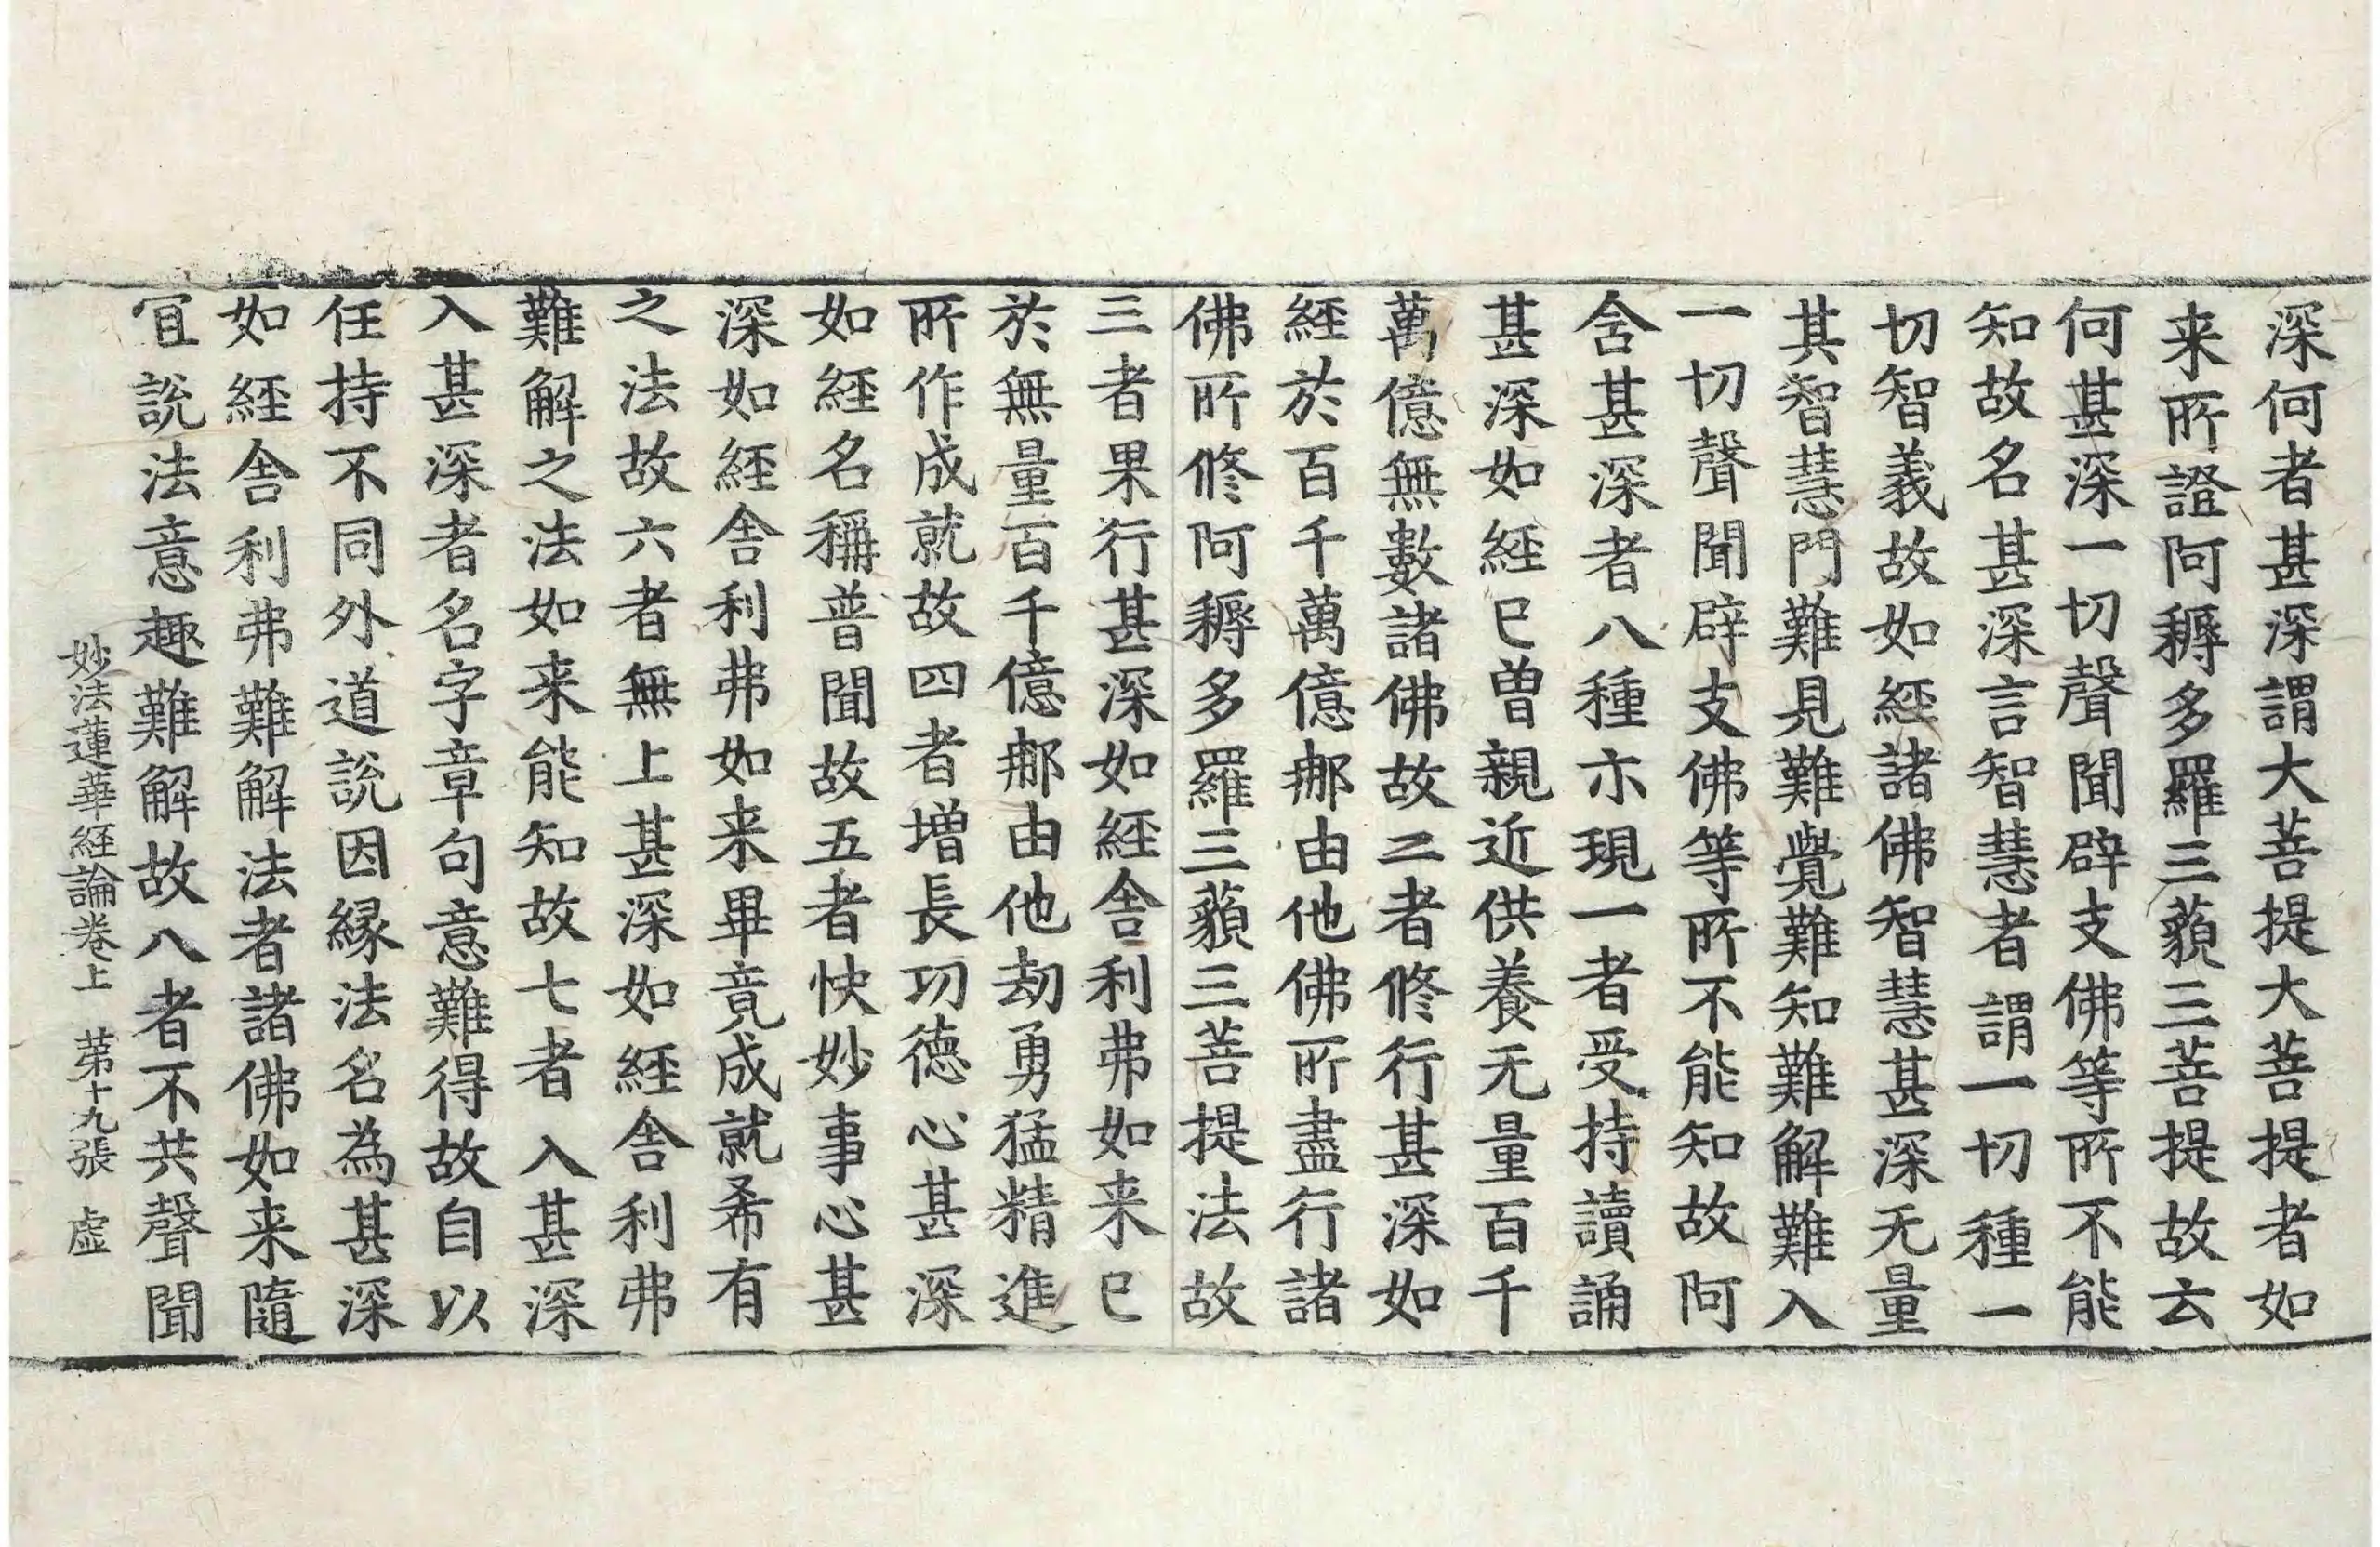 深何者甚深謂大菩提大菩提者如
来所證阿耨多羅三藐三菩提故云
何甚深一切聲聞辟支佛等所不能
知故名甚深言智慧者謂一切種一
切智義故如經諸佛智慧甚深无量
其智慧門難見難覺難知難解難入
一切聲聞辟支佛等所不能知故阿
含甚深者八種示現一者受持讀誦
甚深如經已曽親近供養无量百千
萬億無數諸佛故二者修行甚深如
經於百千萬億那由他佛所盡行諸
佛所修阿耨多羅三藐三菩提法故
三者果行甚深如經舎利弗如来已
於無量百千億那由他劫勇猛精進
所作成就故四者増長功德心甚深
如經名稱普聞故五者快妙事心甚
深如經舎利弗如来畢竟成就希有
之法故六者無上甚深如經舎利弗
難解之法如来能知故七者入甚深
入甚深者名字章句意難得故自以
住持不同外道說因緣法名為甚深
如經舎利弗難解法者諸佛如来隨
宜說法意趣難解故八者不共聲聞
妙法蓮華經論卷上 第十九張 虛